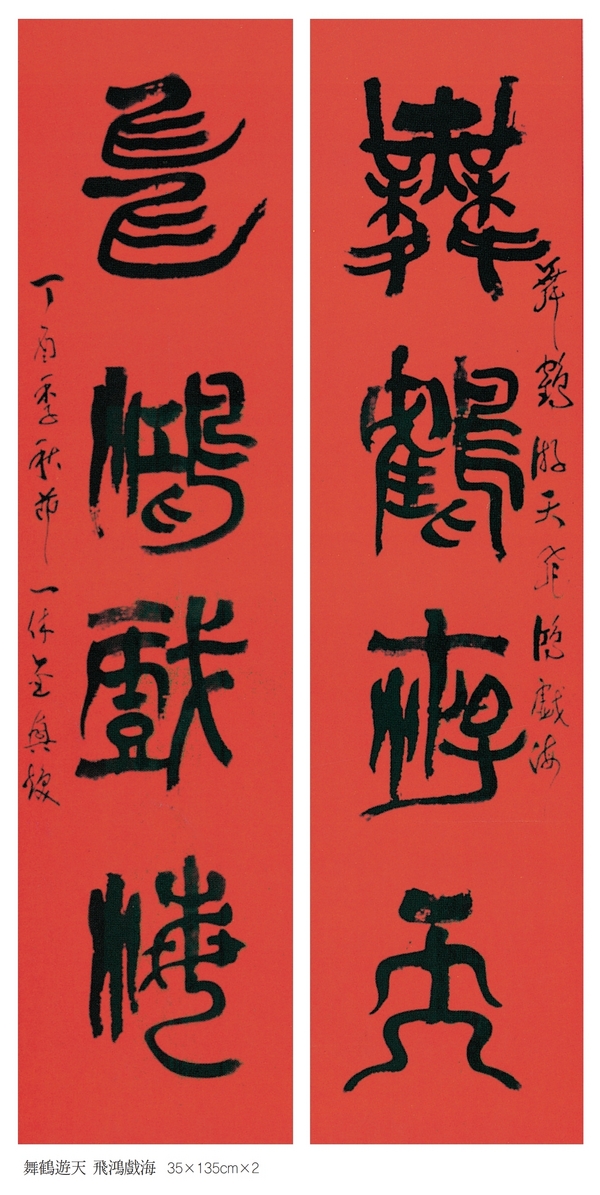 舞鶴游天飛鴻戲海
舞鶴遊天
飛鴻戲海
丁酉季秋節一
舞鶴遊天 飛鴻戲海 35×135cm×2